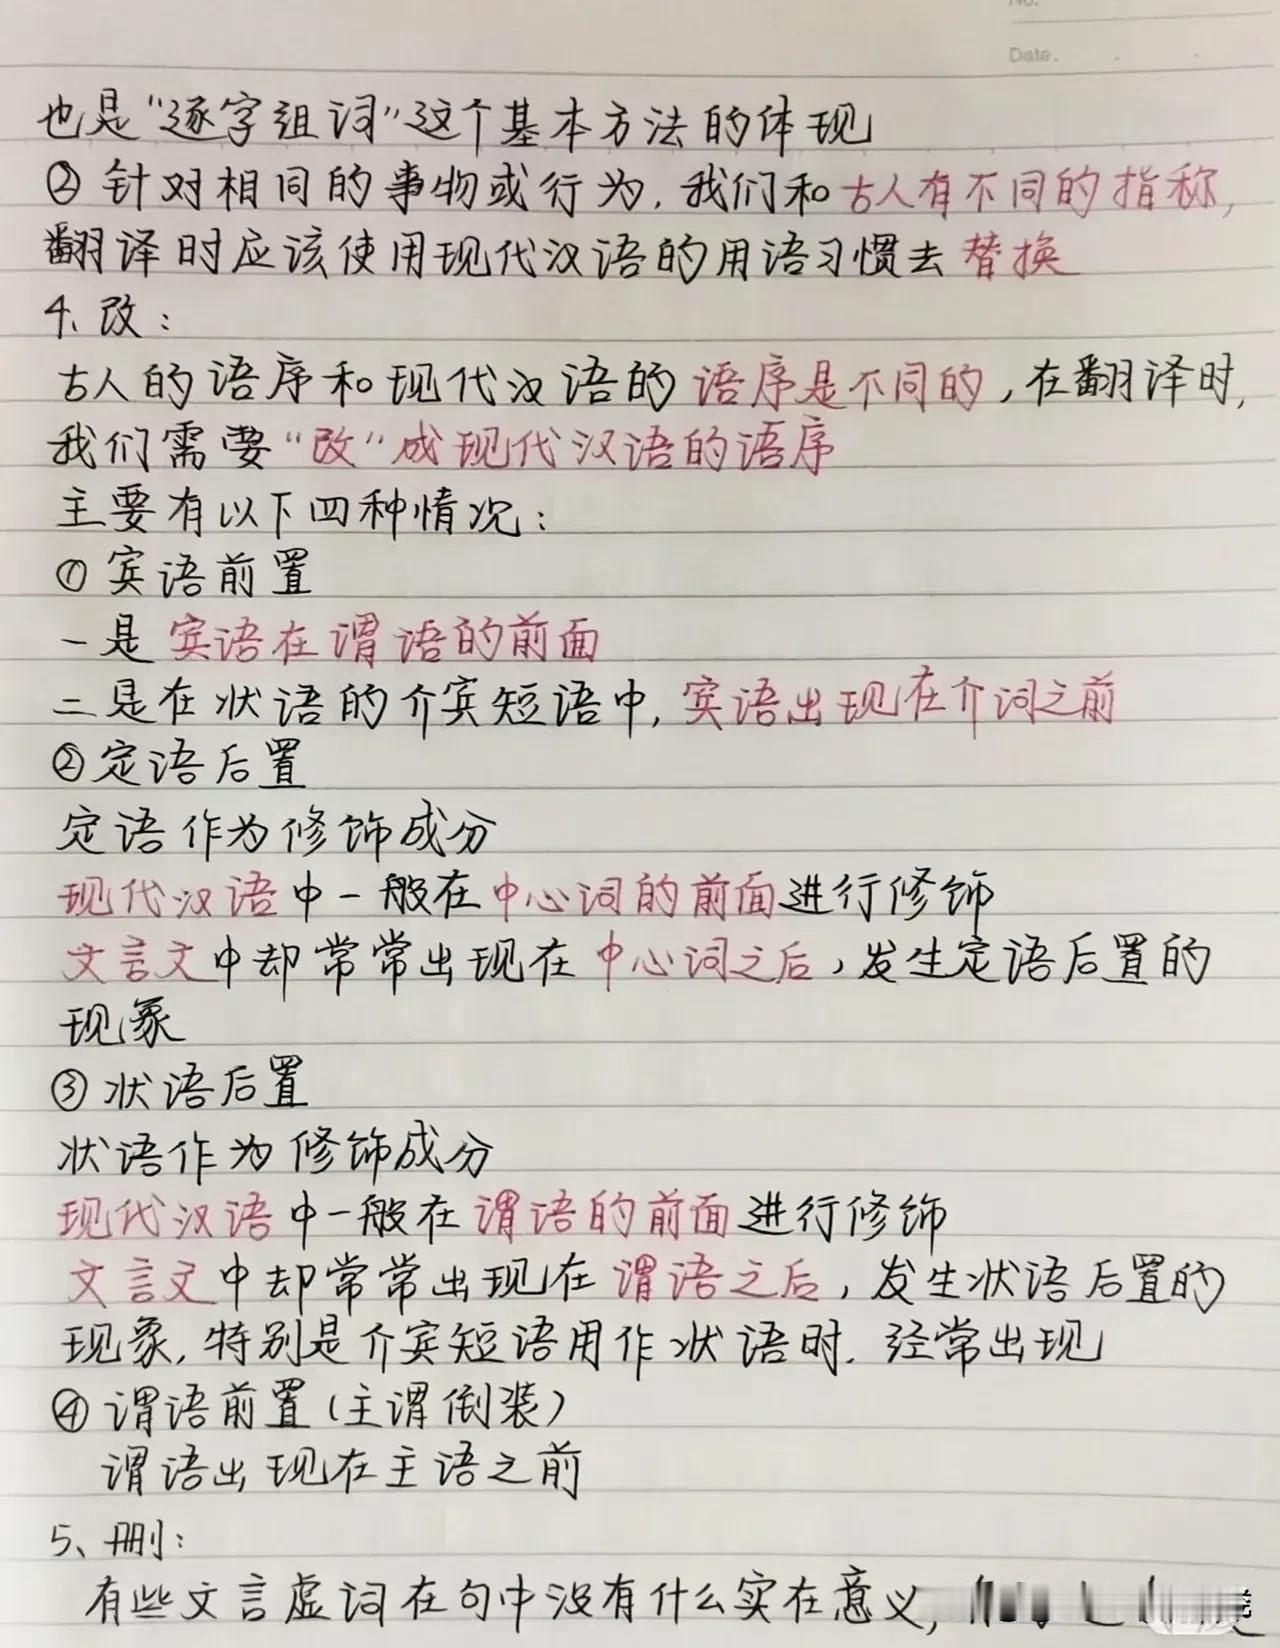 No.
Date.
也是“逐字组词”这个基本方法的体现
② 针对相同的事物或行为,我们和古人有不同的指称,
翻译时应该使用现代汉语的用语习惯去替换
4、改:
古人的语序和现代汉语的语序是不同的,在翻译时,
我们需要“改”成现代汉语的语序
主要有以下四种情况:
① 宾语前置
一是宾语在谓语的前面
二是在状语的介宾短语中,宾语出现在介词之前
② 定语后置
定语作为修饰成分
现代汉语中一般在中心词的前面进行修饰
文言文中却常常出现在中心词之后,发生定语后置的
现象
③ 状语后置
状语作为修饰成分
现代汉语中一般在谓语的前面进行修饰
文言文中却常常出现在谓语之后,发生状语后置的
现象,特别是介宾短语用作状语时.经常出现
④ 谓语前置(主谓倒装)
谓语出现在主语之前
5、删:
有些文言虚词在句中没有什么实在意义,